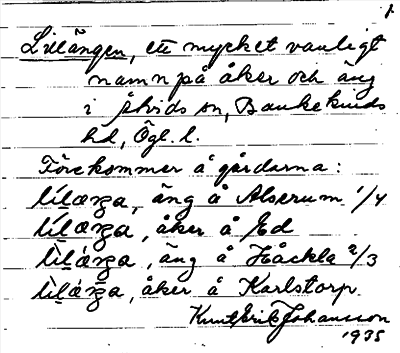 1
Lillängen, ett mycket vanligt
namn på åker och äng
i Åtvids sn, Bankekinds
hd, Ögl. l.
Förekommer å gårdarna:
lìlæ̀ŋa, äng å Alserum 1/4
lìlæ̀ŋa, åker å Ed
lìlæ̀ŋa, äng å Håckla 2/3
lìlæ̀ŋa, åker å Karlstorp.
Knut Erik Johansson
1935